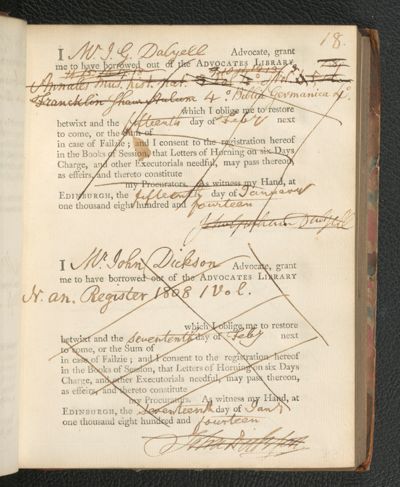 18.
I Mr J. G. Dalyell Advocate, grant
me to have borrowed out of the ADVOCATES LIBRARY
Annales Mus. hist. nat.
4o Biblia Germanica 4o
which I oblige me to restore
betwixt and the fifteenth day of Feby next
to come, or the Sum of
in case of Failzie; and I consent to the registration hereof
in the Books of Session, that Letters of Horning on six Days
Charge, and other Executorials needful, may pass thereon,
as effeirs, and thereto constitute
my Procurators. As witness my Hand, at
EDINBURGH, the fifteenth day of January
one thousand eight hundred and fourteen
John Graham Dalyell
I Mr John Dickson Advocate, grant
me to have borrowed out of the ADVOCATES LIBRARY
N. an. Register 1808 1 Vol.
which I oblige me to restore
betwixt and the seventeenth day of Feby next
to come, or the Sum of
in case of Failzie; and I consent to the registration hereof
in the Books of Session, that Letters of Horning on six Days
Charge, and other Executorials needful, may pass thereon,
as effeirs, and thereto constitute
my Procurators. As witness my Hand, at
EDINBURGH, the seventeenth day of Jany
one thousand eight hundred and fourteen